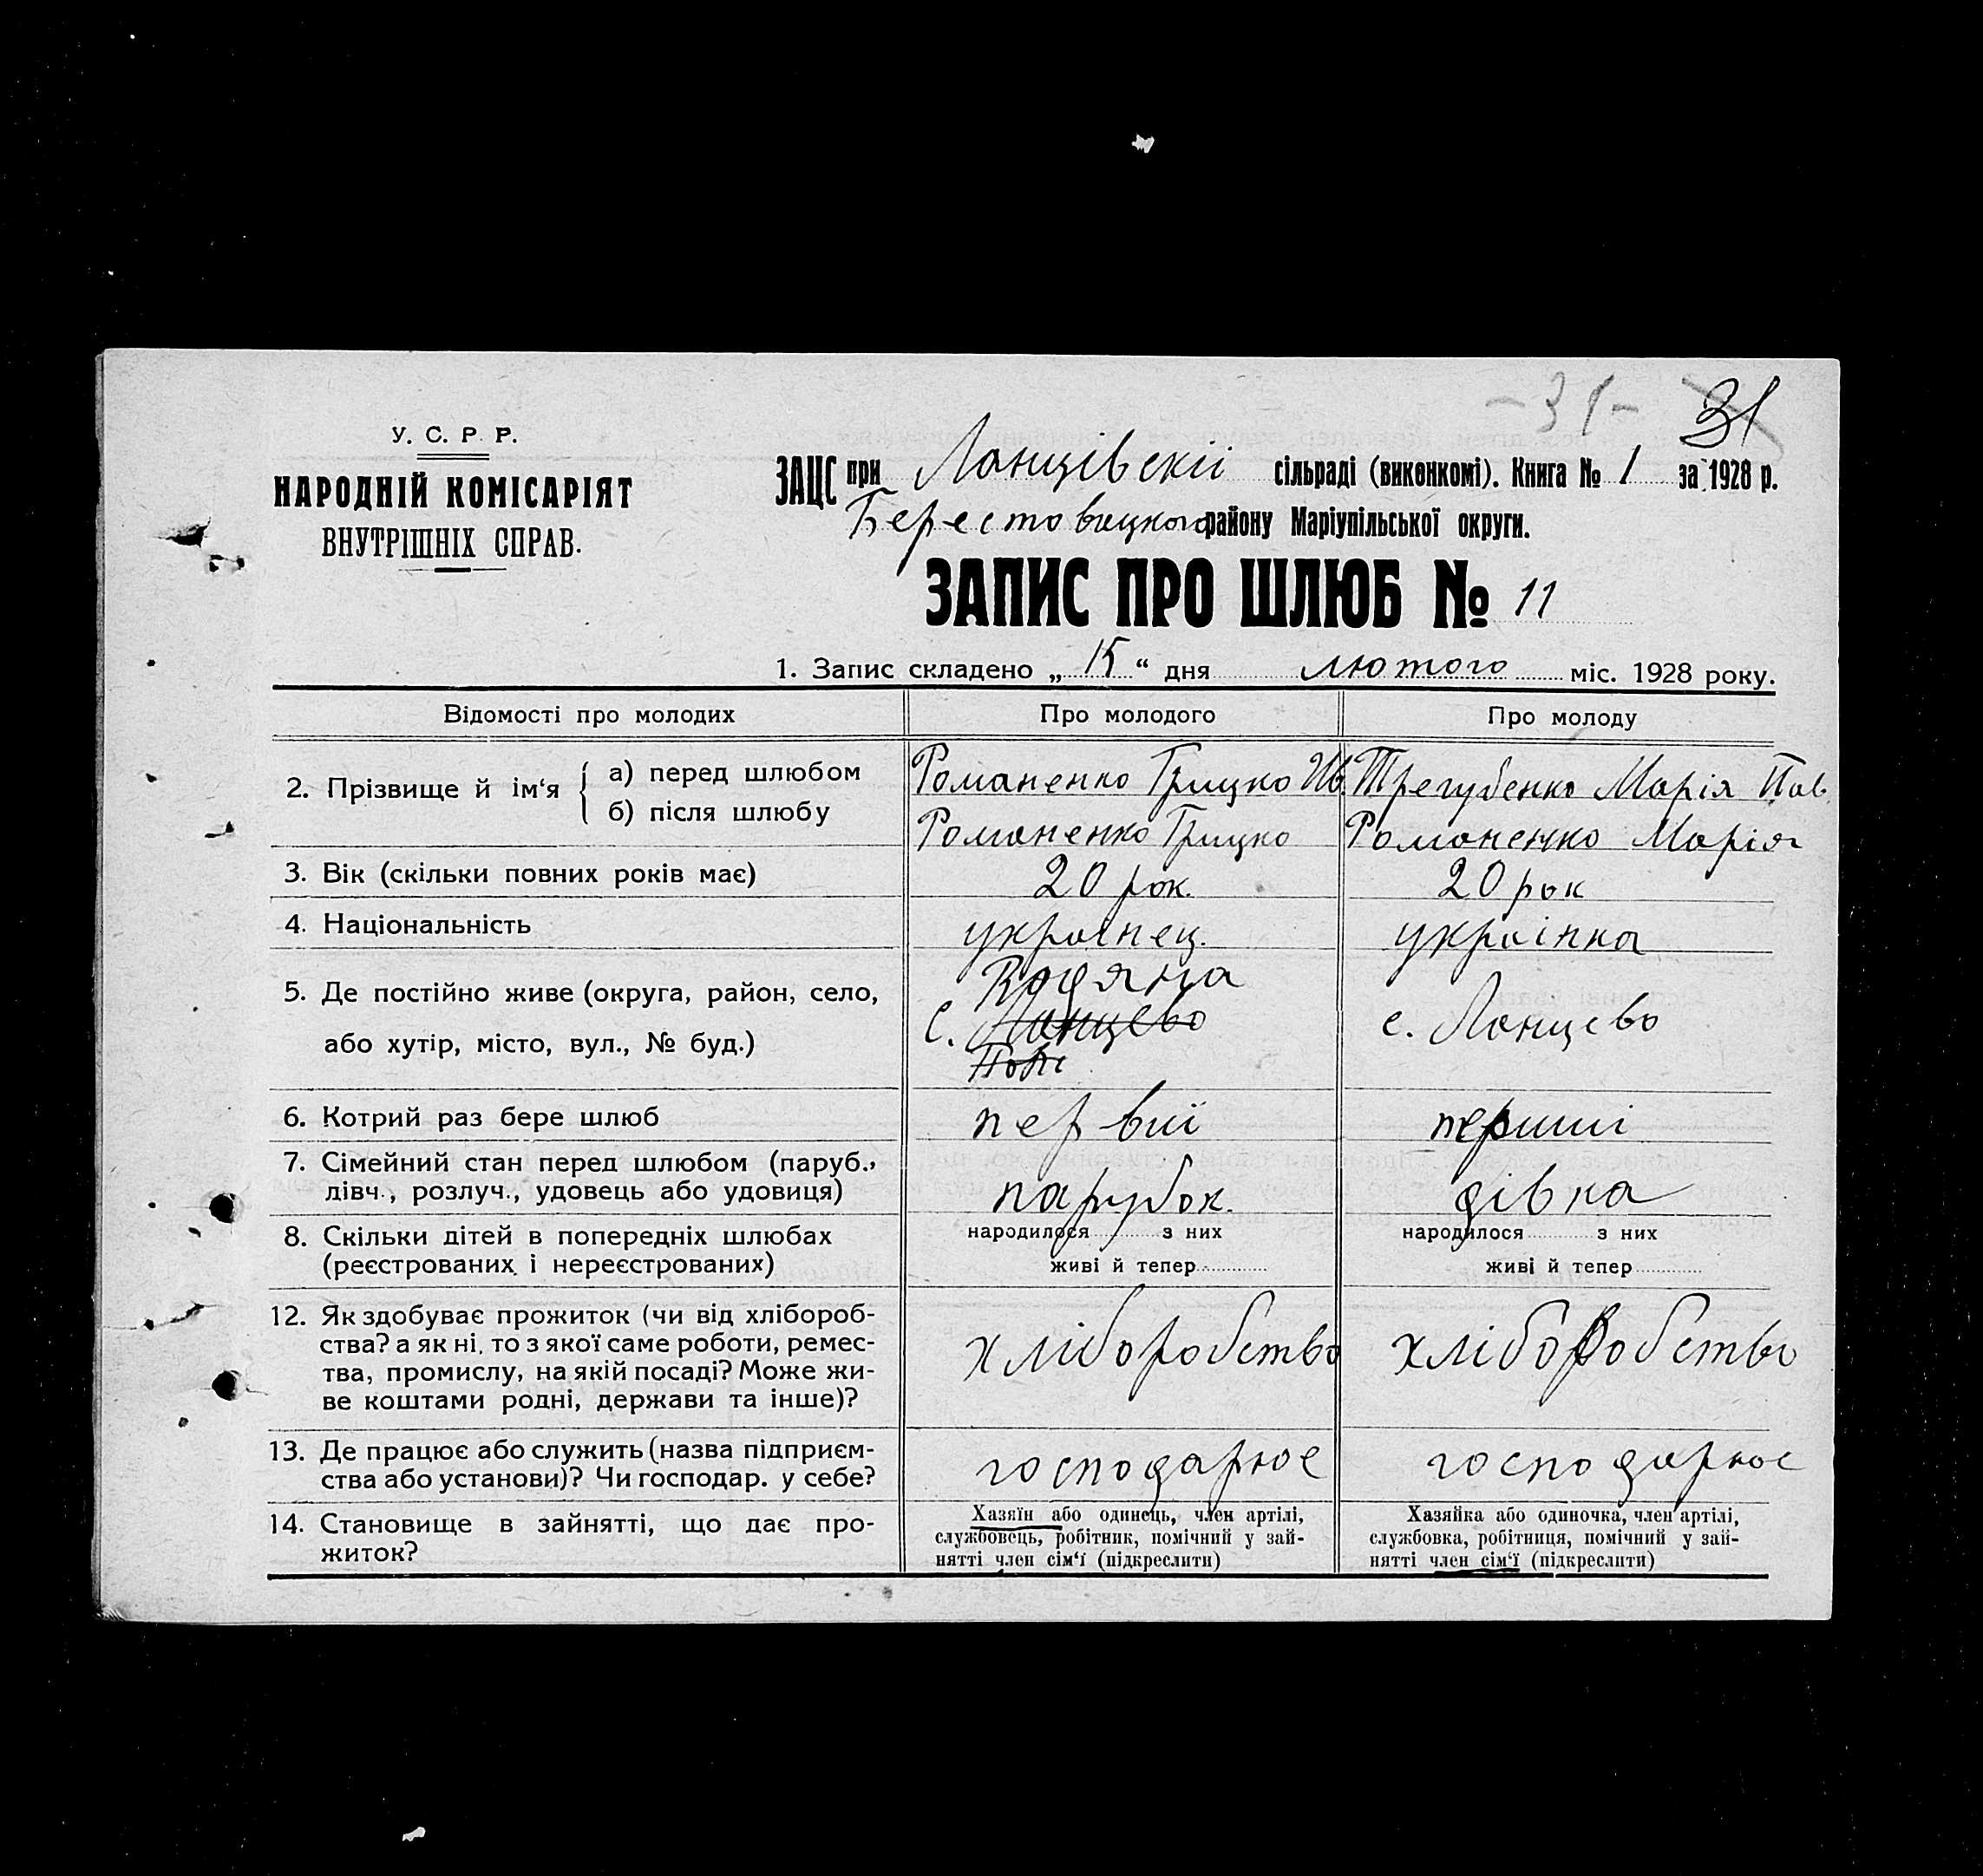 -31- 31
У. С. Р. Р.
НАРОДНІЙ КОМІСАРІЯТ
ВНУТРІШНІХ СПРАВ.
ЗАЦС при Ланцівскій сільраді (виконкомі). Книга № 1 за 1928 р.
Берестовицкого району Маріупільської округи.
ЗАПИС ПРО ШЛЮБ № 11
1. Запис складено „ 15 “ дня лютого міс. 1928 року.
Відомості про молодих Про молодого Про молоду
2. Прізвище й ім‘я { а) перед шлюбом Романенко Грицко Ив. Трегубенко Марія Пав.
б) після шлюбу Романенко Грицко Романенко Марія
3. Вік (скільки повних років має) 20 рок. 20 рок
4. Національність українец. українка
5. Де постійно живе (округа, район, село, або хутір, місто, вул., № буд.) Водяна с. Ланцево с. Ланцево
6. Котрий раз бере шлюб первиї перший
7. Сімейний стан перед шлюбом (паруб.,
дівч., розлуч., удовець або удовиця) парубок. дівка
8. Скільки дітей в попередніх шлюбах народилося з них народилося з них
(реєстрованих і нереєстрованих) живі й тепер живі й тепер
12. Як здобуває прожиток (чи від хлібороб-
ства? а як ні, то з якої саме роботи, ремес-
тва, промислу, на якій посаді? Може жи-
ве коштами родні, держави та інше)? хліборобство хліборобство
13. Де працює або служить (назва підприєм-
ства або установи)? Чи господар. у себе? господарює господарює
14. Становище в зайнятті, що дає про-
житок?
Хазяїн або одинець, член артілі,
службовець, робітник, помічний у зай-
нятті член сім‘ї (підкреслити)
Хазяйка або одиночка, член артілі,
службовка, робітниця, помічний у зай-
нятті член сім‘ї (підкреслити)